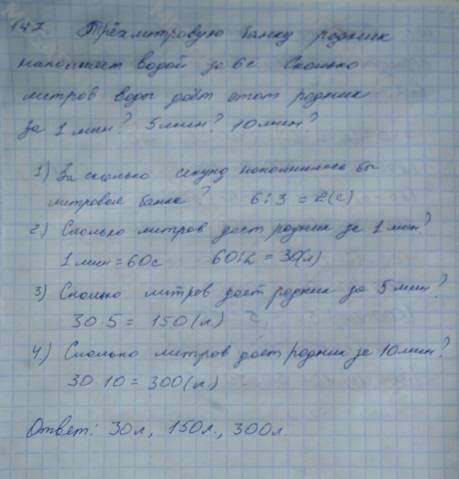 147 Трёхлитровую банку родник
наполняет водой за 6с Сколько
литров воды даёт этот родник
за 1 мин? 5 мин? 10 мин?
1) За сколько секунд наполнилась бы
литровая банка? 6:3 = 2(с)
2) Сколько литров даёт родник за 1 мин?
1 мин = 60с 60:2 = 30(л)
3) Сколько литров даёт родник за 5 мин?
30·5 = 150 (л)
4) Сколько литров даёт родник за 10 мин?
30·10 = 300(л)
Ответ: 30л, 150л, 300л.